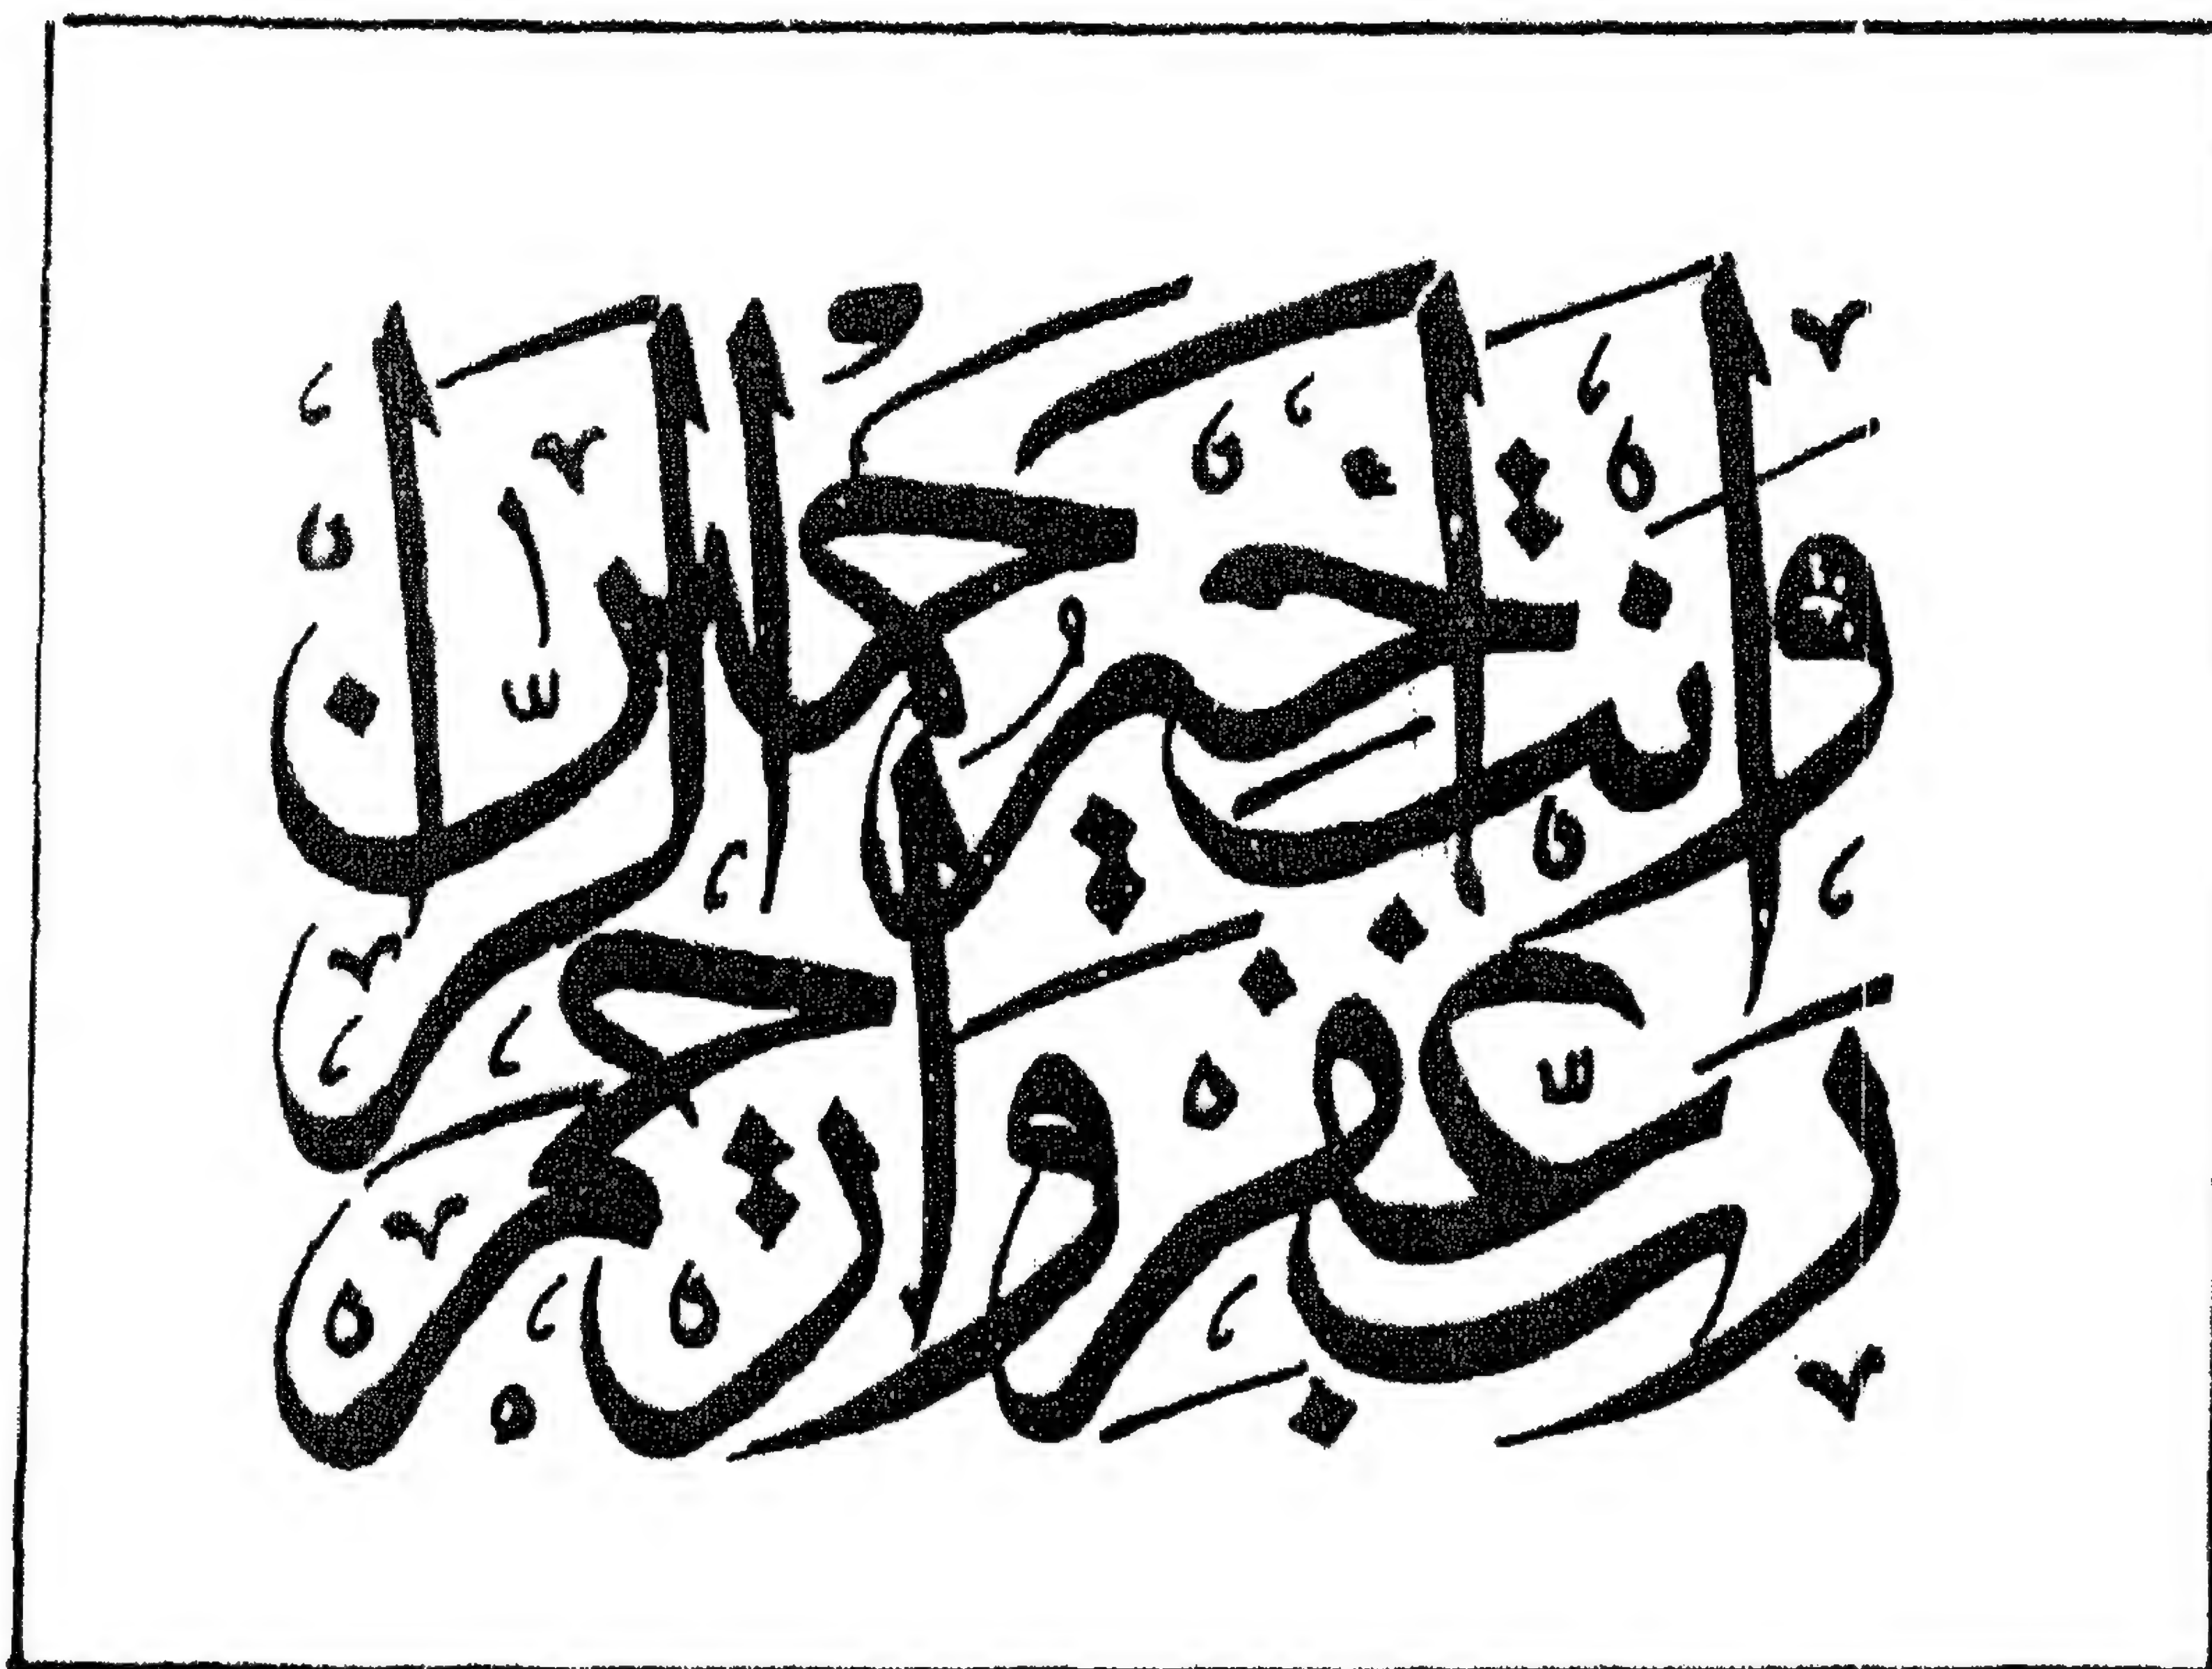 رب اغفر وارحم
وأنت خير الراحمين